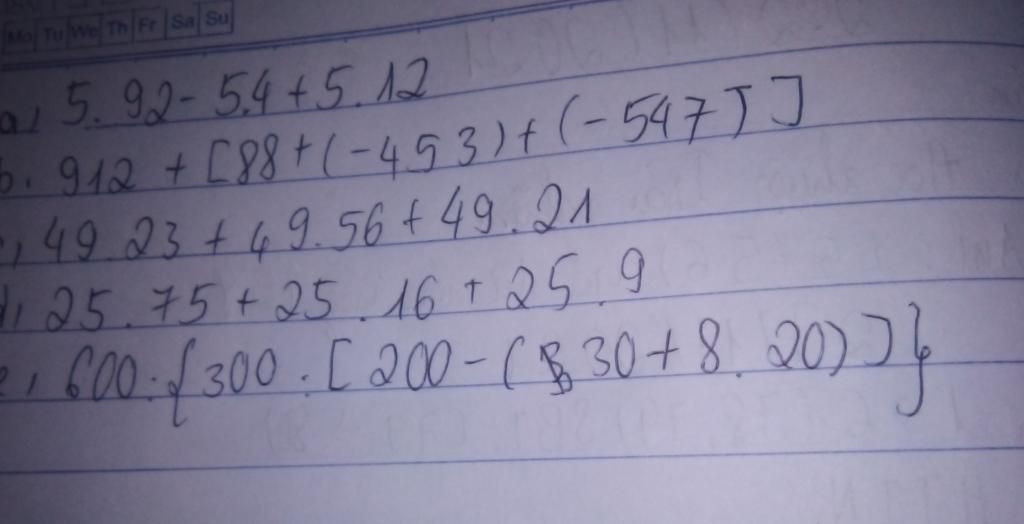 Mo Tu We Th Fr Sa Su
a, 5.92-5.4+5.12
b. 912 + [88+(-453)+(-547)]
, 49.23+49.56+49.21
d, 25.75+25.16+25.9
e, 600:{300:[200-( 30+8.20)]}